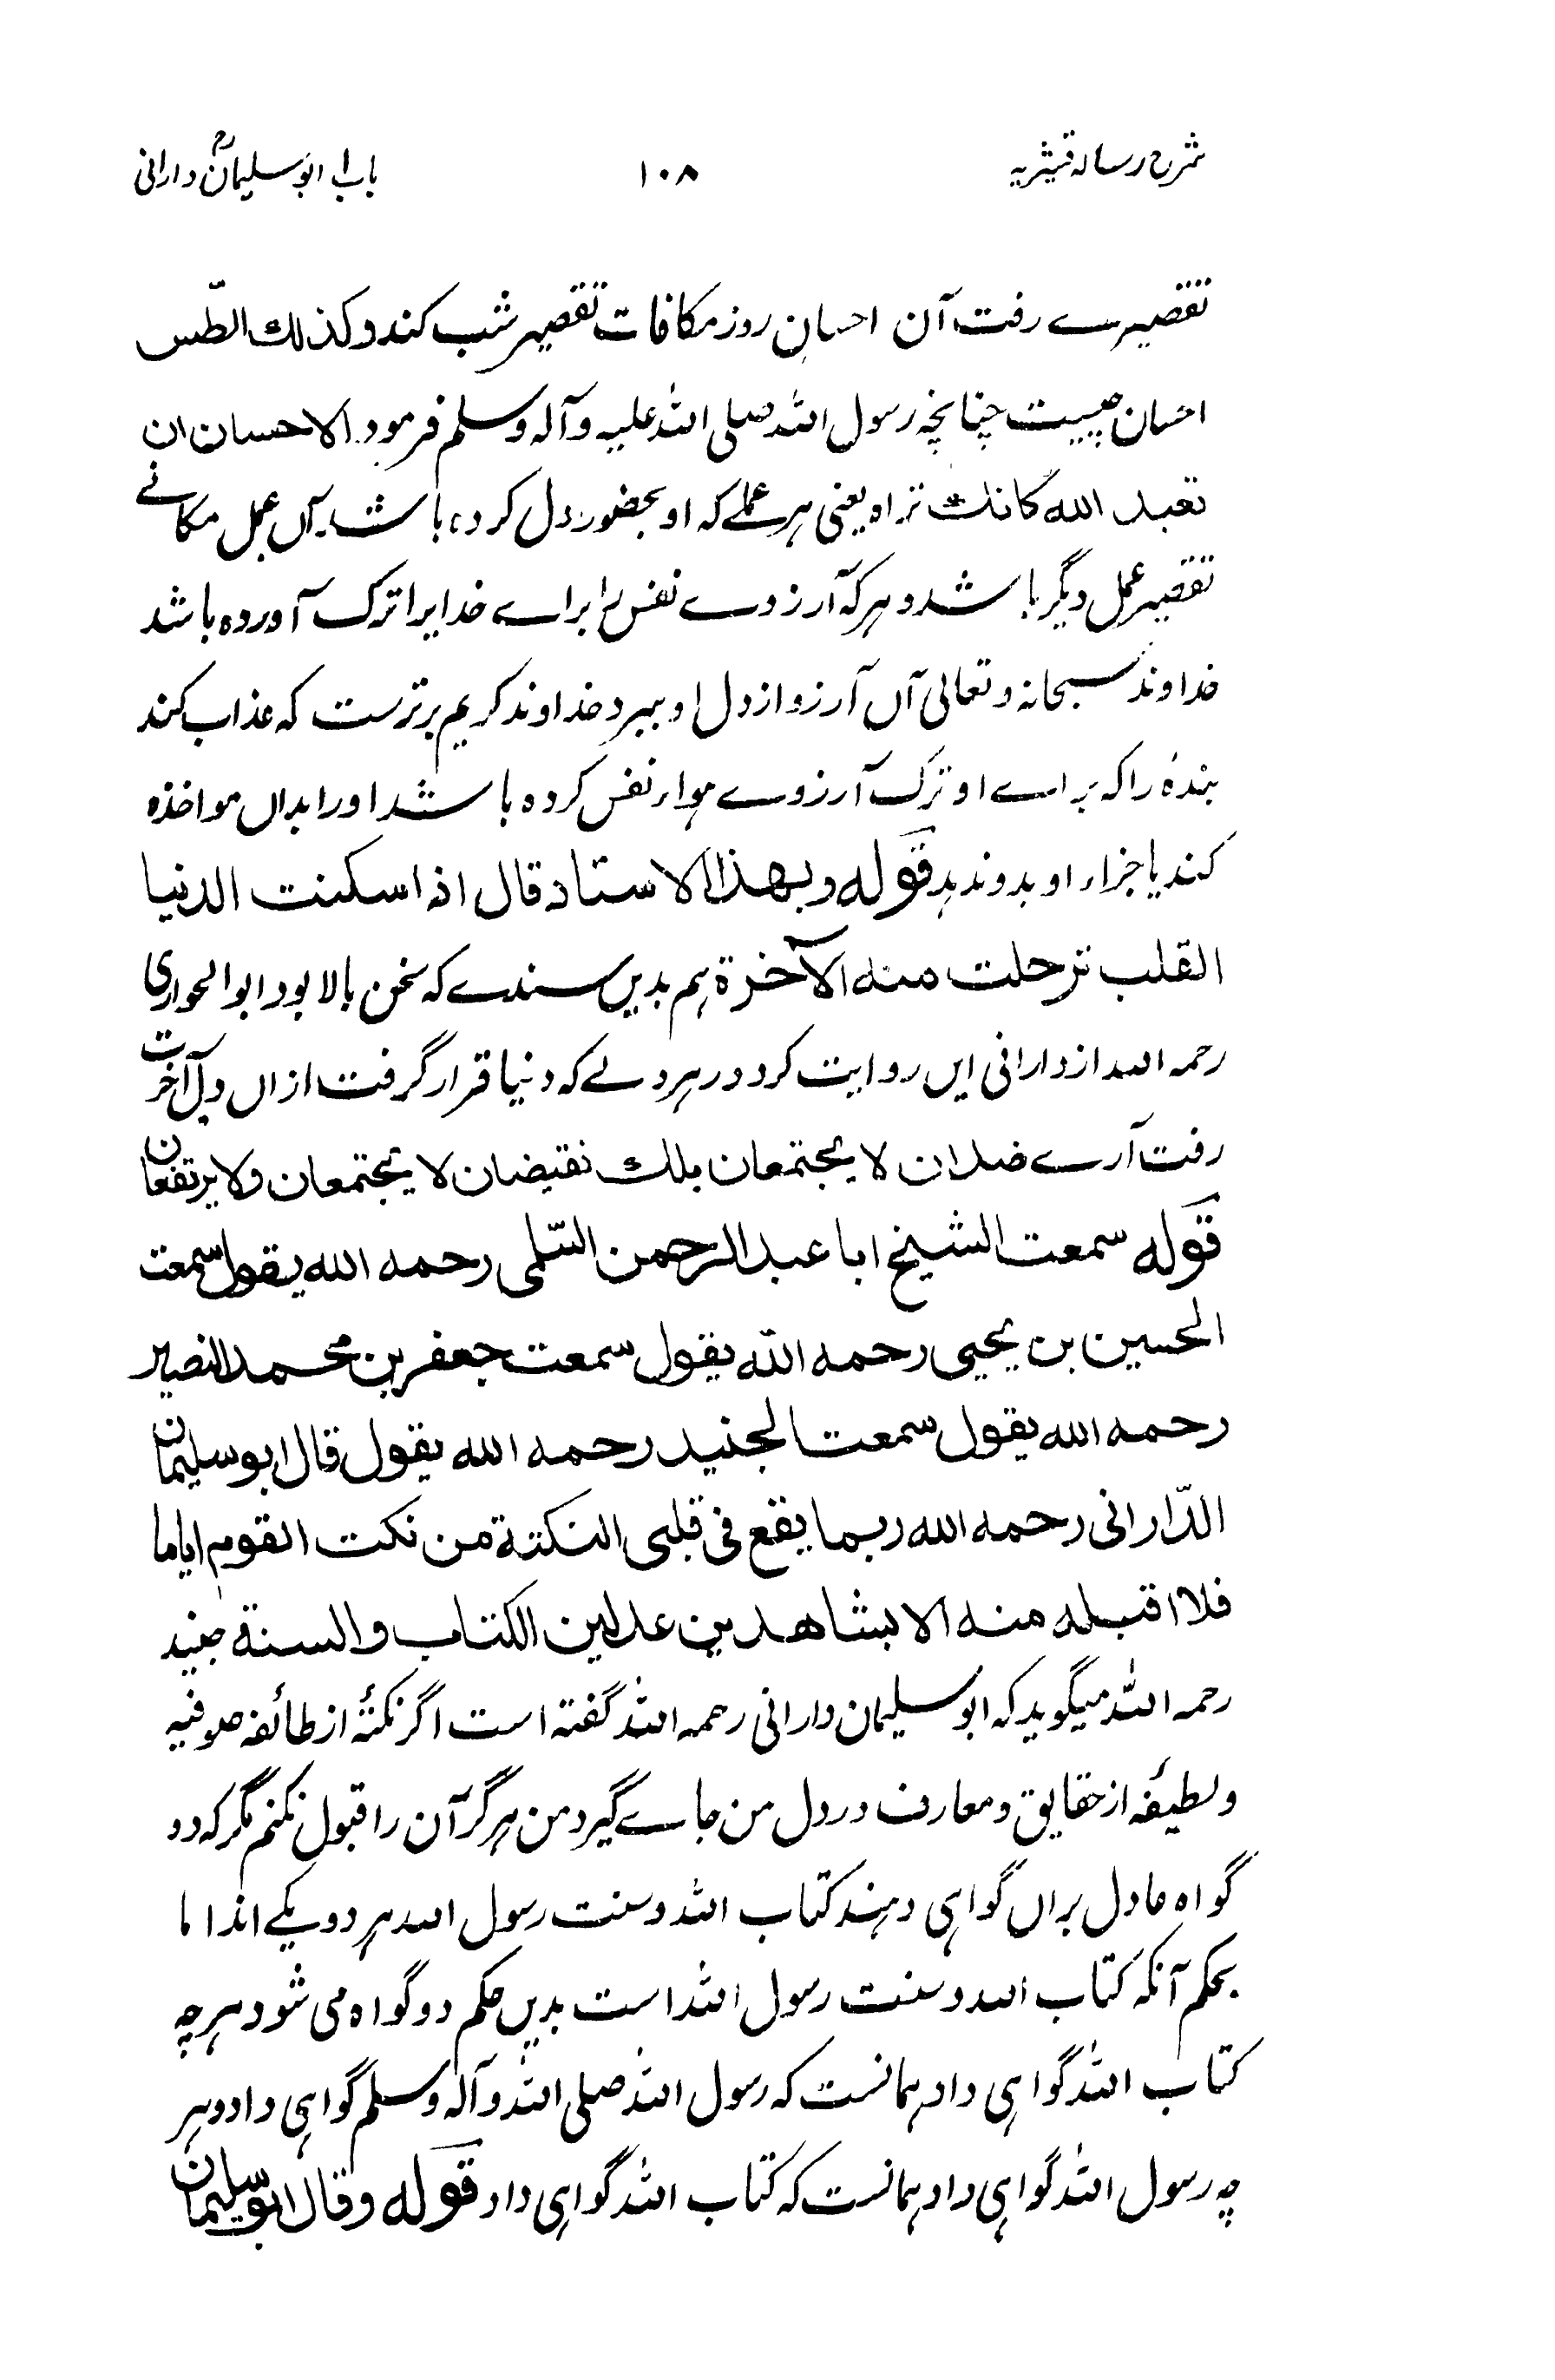 شرح رسالہ قشیریہ ۱۰۸ باب ابوسلیمانؒ دارانی
تقصیرے رفت آن احسانِ روز مکافات تقصیر شب کند وکذلك الطّس
احسان چیست چنانچہ رسول اللہ صلی اللہ علیہ وآلہ وسلم فرمود الاحسان ان
تعبد الله كانك تراه یعنی ہر عملے کہ او بحضور دل کردہ باشد آں عمل مکانے
تقصیر عمل دیگر باشد و ہر کہ آرزوے نفس را براے خدایرا ترک آوردہ باشد
خداوند سبحانہ وتعالی آں آرزو از دل او ببرد خداوند کریم برترست کہ عذاب کند
بندۂ را کہ براے او ترک آرزوے ہواء نفس کردہ باشد او را بداں مواخذہ
کند یا جزاء او بدو ندہد قوله وبهذا الاستاد قال اذا سكنت الدنيا
القلب ترحلت منه الآخرة ہم بدیں سندے کہ سخن بالا بود ابوالحواری
رحمہ اللہ از دارانی ایں روایت کرد در ہر دلے کہ دنیا قرار گرفت ازاں دل آخرت
رفت آرے ضدان لا يجتمعان بلك نقيضان لا يجتمعان ولا يرتفعان
قوله سمعت الشيخ ابا عبد الرحمن السّلمى رحمه الله يقول سمعت
الحسين بن يحيى رحمه الله يقول سمعت جعفر بن محمد النصير
رحمه الله يقول سمعت الجنيد رحمه الله يقول قال ابوسليمان
الدّارانى رحمه الله ربما يقع فى قلبى النكتة من نكت القوم اياما
فلا اقبله منه الا بشاهدين عدلين الكتاب والسنة جنید
رحمہ اللہ میگوید کہ ابوسلیمان دارانی رحمہ اللہ گفتہ است اگر نکتۂ از طائفہ صوفیہ
ولطیفۂ از حقایق و معارف در دل من جاے گیرد من ہرگز آن را قبول نکنم مگر کہ دو
گواہ عادل براں گواہی دہند کتاب اللہ وسنت رسول اللہ ہر دو یکے اند اما
بحکم آنکہ کتاب اللہ وسنت رسول اللہ است بدیں حکم دو گواہ می شود ہرچہ
کتاب اللہ گواہی داد ہمانست کہ رسول اللہ صلی اللہ وآلہ وسلم گواہی داد وہر
چہ رسول اللہ گواہی داد ہمانست کہ کتاب اللہ گواہی داد قوله وقال ابوسليمان